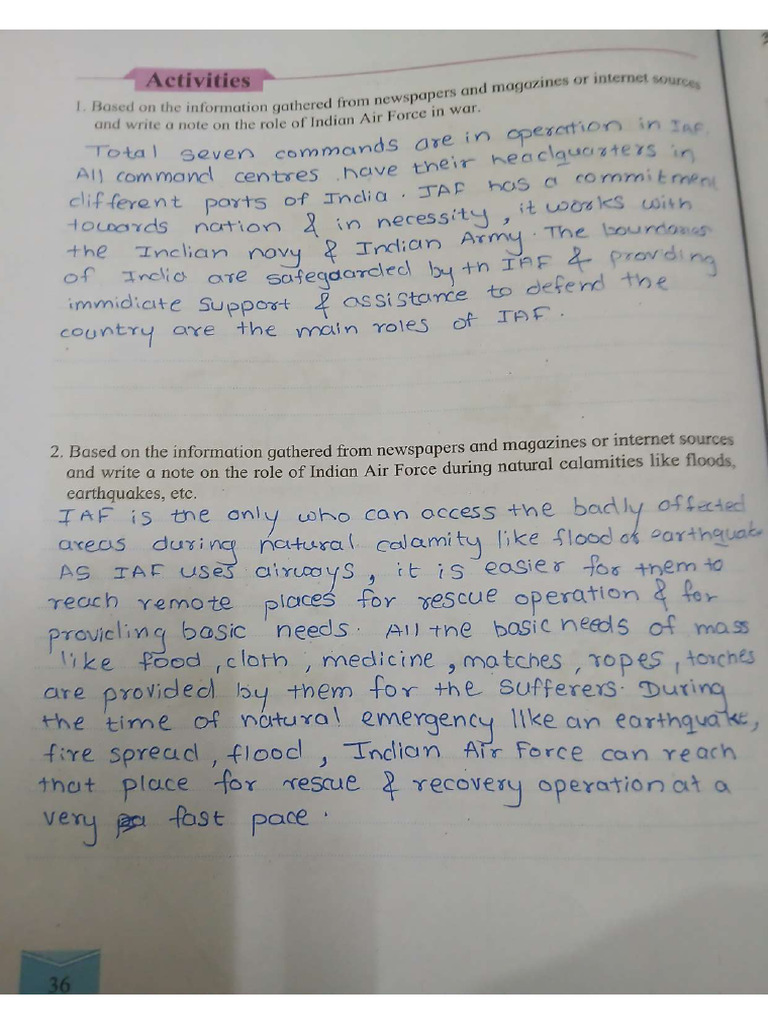 Activities
1. Based on the information gathered from newspapers and magazines or internet sources
and write a note on the role of Indian Air Force in war.
Total seven commands are in operation in IAF.
All command centres have their headquarters in
different parts of India. IAF has a commitment
towards nation & in necessity, it works with
the Indian navy & Indian Army. The boundaries
of India are safegaarded by th IAF & providing
immidiate support & assistance to defend the
country are the main roles of IAF.
2. Based on the information gathered from newspapers and magazines or internet sources
and write a note on the role of Indian Air Force during natural calamities like floods,
earthquakes, etc.
IAF is the only who can access the badly affected
areas during natural calamity like flood or earthquak
AS IAF uses airways, it is easier for them to
reach remote places for rescue operation & for
providing basic needs. All the basic needs of mass
like food, cloth, medicine, matches, ropes, torches
are provided by them for the sufferers. During
the time of natural emergency like an earthquake,
fire spread, flood, Indian Air Force can reach
that place for rescue & recovery operation at a
very fast pace.
36